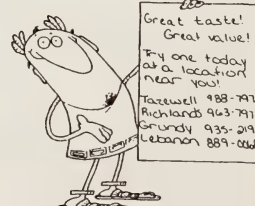 Great taste!
Great value!
Try one today
at a location
near you!
Tazewell 988-797
Richlands 963-797
Grundy 935-219
Lebanon 889-